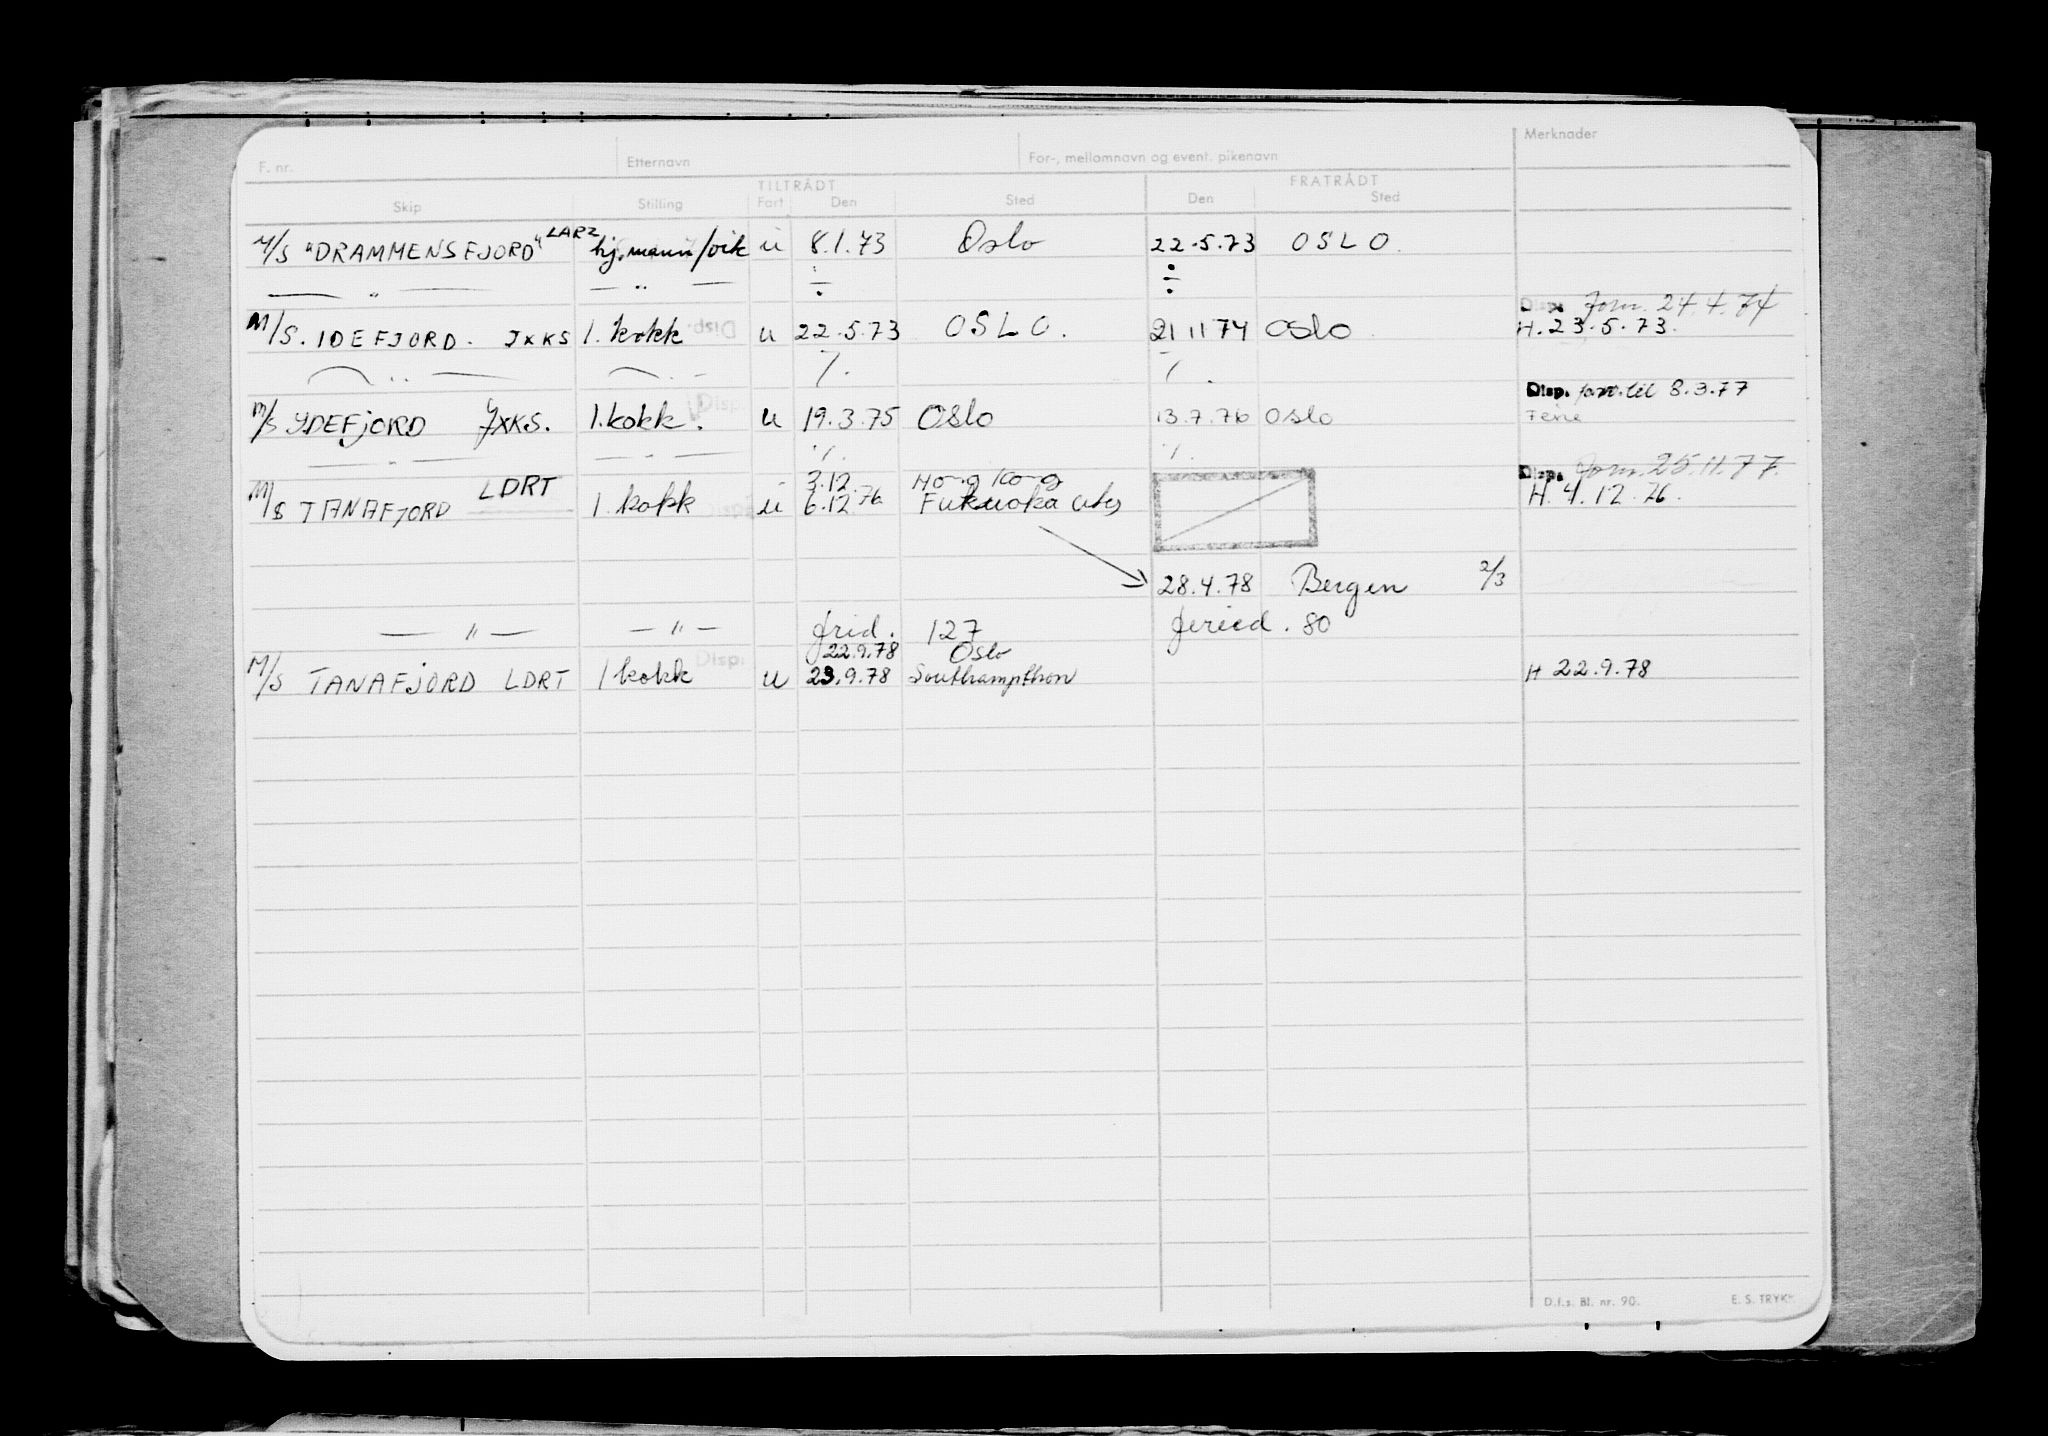 F. nr. Etternavn For-, mellomnavn og event. pikenavn Merknader
TILTRÅDT FRATRÅDT
Skip Stilling Fart Den Sted Den Sted
M/S "DRAMMENSFJORD" LARZ hj.mann/vik u 8.1.73 Oslo 22.5.73 OSLO.
— " — — " — ÷ ÷
Disp. 24.4.74
M/S. IDEFJORD. JXKS 1. kokk Disp. u 22.5.73 OSLO. 21 11 74 Oslo H. 23.5.73.
— " — — " — ./. ./.
Disp. til 8.3.77
M/S YDEFJORD JXKS. 1. kokk. Disp. u 19.3.75 Oslo 13.7.76 Oslo Ferie
— " — — " — ./. ./.
3.12. Hong Kong Disp. 25.11.77.
M/S TANAFJORD LDRT 1. kokk Disp. u 6.12 76 Fukuoka H. 4.12.76.
28.4.78 Bergen 2/3
— " — — " — frid. 127 feried. 80
22.9.78 Oslo
M/S TANAFJORD LDRT 1 kokk Disp. u 23.9.78 Southampthon H 22.9.78
D.f.s. Bl. nr. 90. E. S. TRYKK